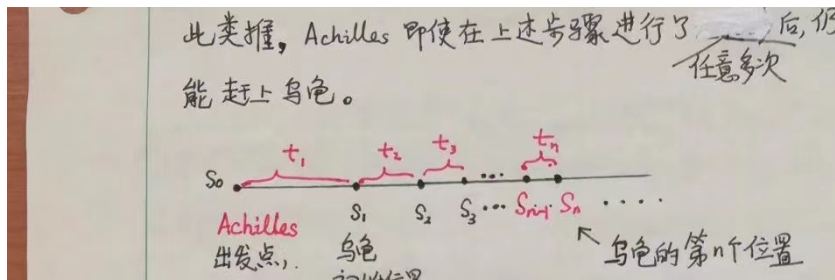 此类推，Achilles 即使在上述步骤进行了 后，仍
任意多次
能赶上乌龟。
t₁ t₂ t₃ tₙ
S₀ ...
S₁ S₂ S₃ ... Sₙ₋₁ Sₙ ....
Achilles
出发点，. 乌龟 乌龟的第n个位置
位置